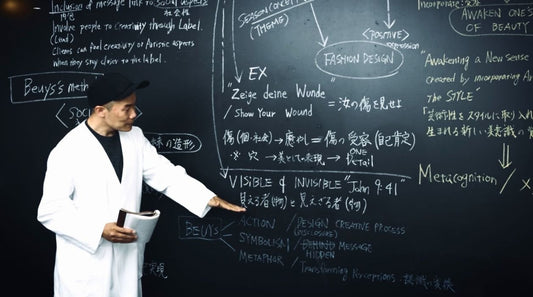 Inclusion of message link to Social aspects
社会性
Involve people to creativity through Label.
Clients can feel creativity or Artistic aspects
when they stay closer to the label.
Beuys's meth
の造形)
SEASON CONCEPT
(THEME)
<POSITIVE>
expression
FASHION DESIGN
EX
"Zeige deine Wunde
/ Show Your Wound
= 汝の傷を見せよ
傷(個・社会)→癒やし=傷の受容(自己肯定)
穴 →美としての表現→
ONE
Tail
VISIBLE & INVISIBLE "John 9:41"
見える者(物)と見えざる者(物)
BEUYS
ACTION / DESIGN CREATIVE PROCESS
(DISCLOSURE)
SYMBOLISM / BEHIND MESSAGE
HIDDEN
METAPHOR / Transforming Perceptions
Incorporate
AWAKEN ONE'S
OF BEAUTY
"Awakening a New sense
created by incorporating Ar
The STYLE"
スタイルに取り入れ
生まれる新しい美意識の
Metacognition /